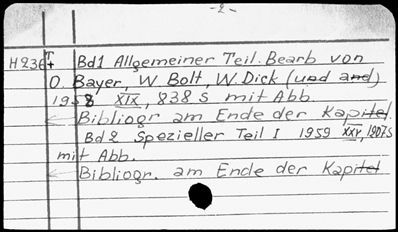 -2-
H236 T+ Bd1 Allgemeiner Teil. Bearb von
O. Bayer, W Bolt, W. Dick (und and)
1958 XIX, 838 S mit Abb.
Bibliogr am Ende der Kapitel.
Bd 2 Spezieller Teil I 1959 XXV, 1207 S
mit Abb.
Bibliogr. am Ende der Kapitel